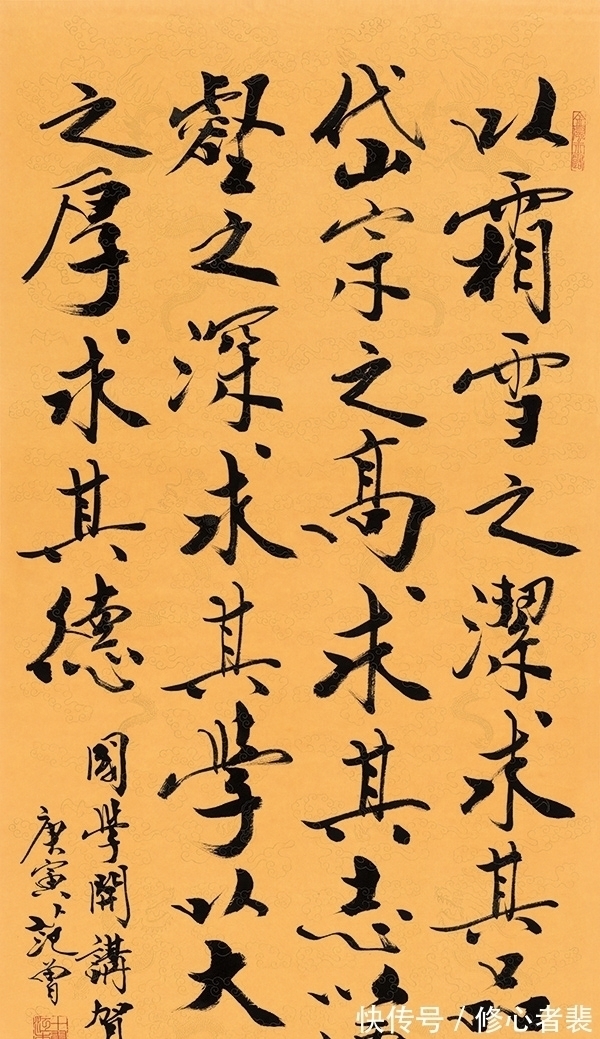 以霜雪之潔求其品
岱宗之高求其志以
壑之深求其學以大
之厚求其德
國學開講賀
庚寅 范曾
快传号/修心者裴